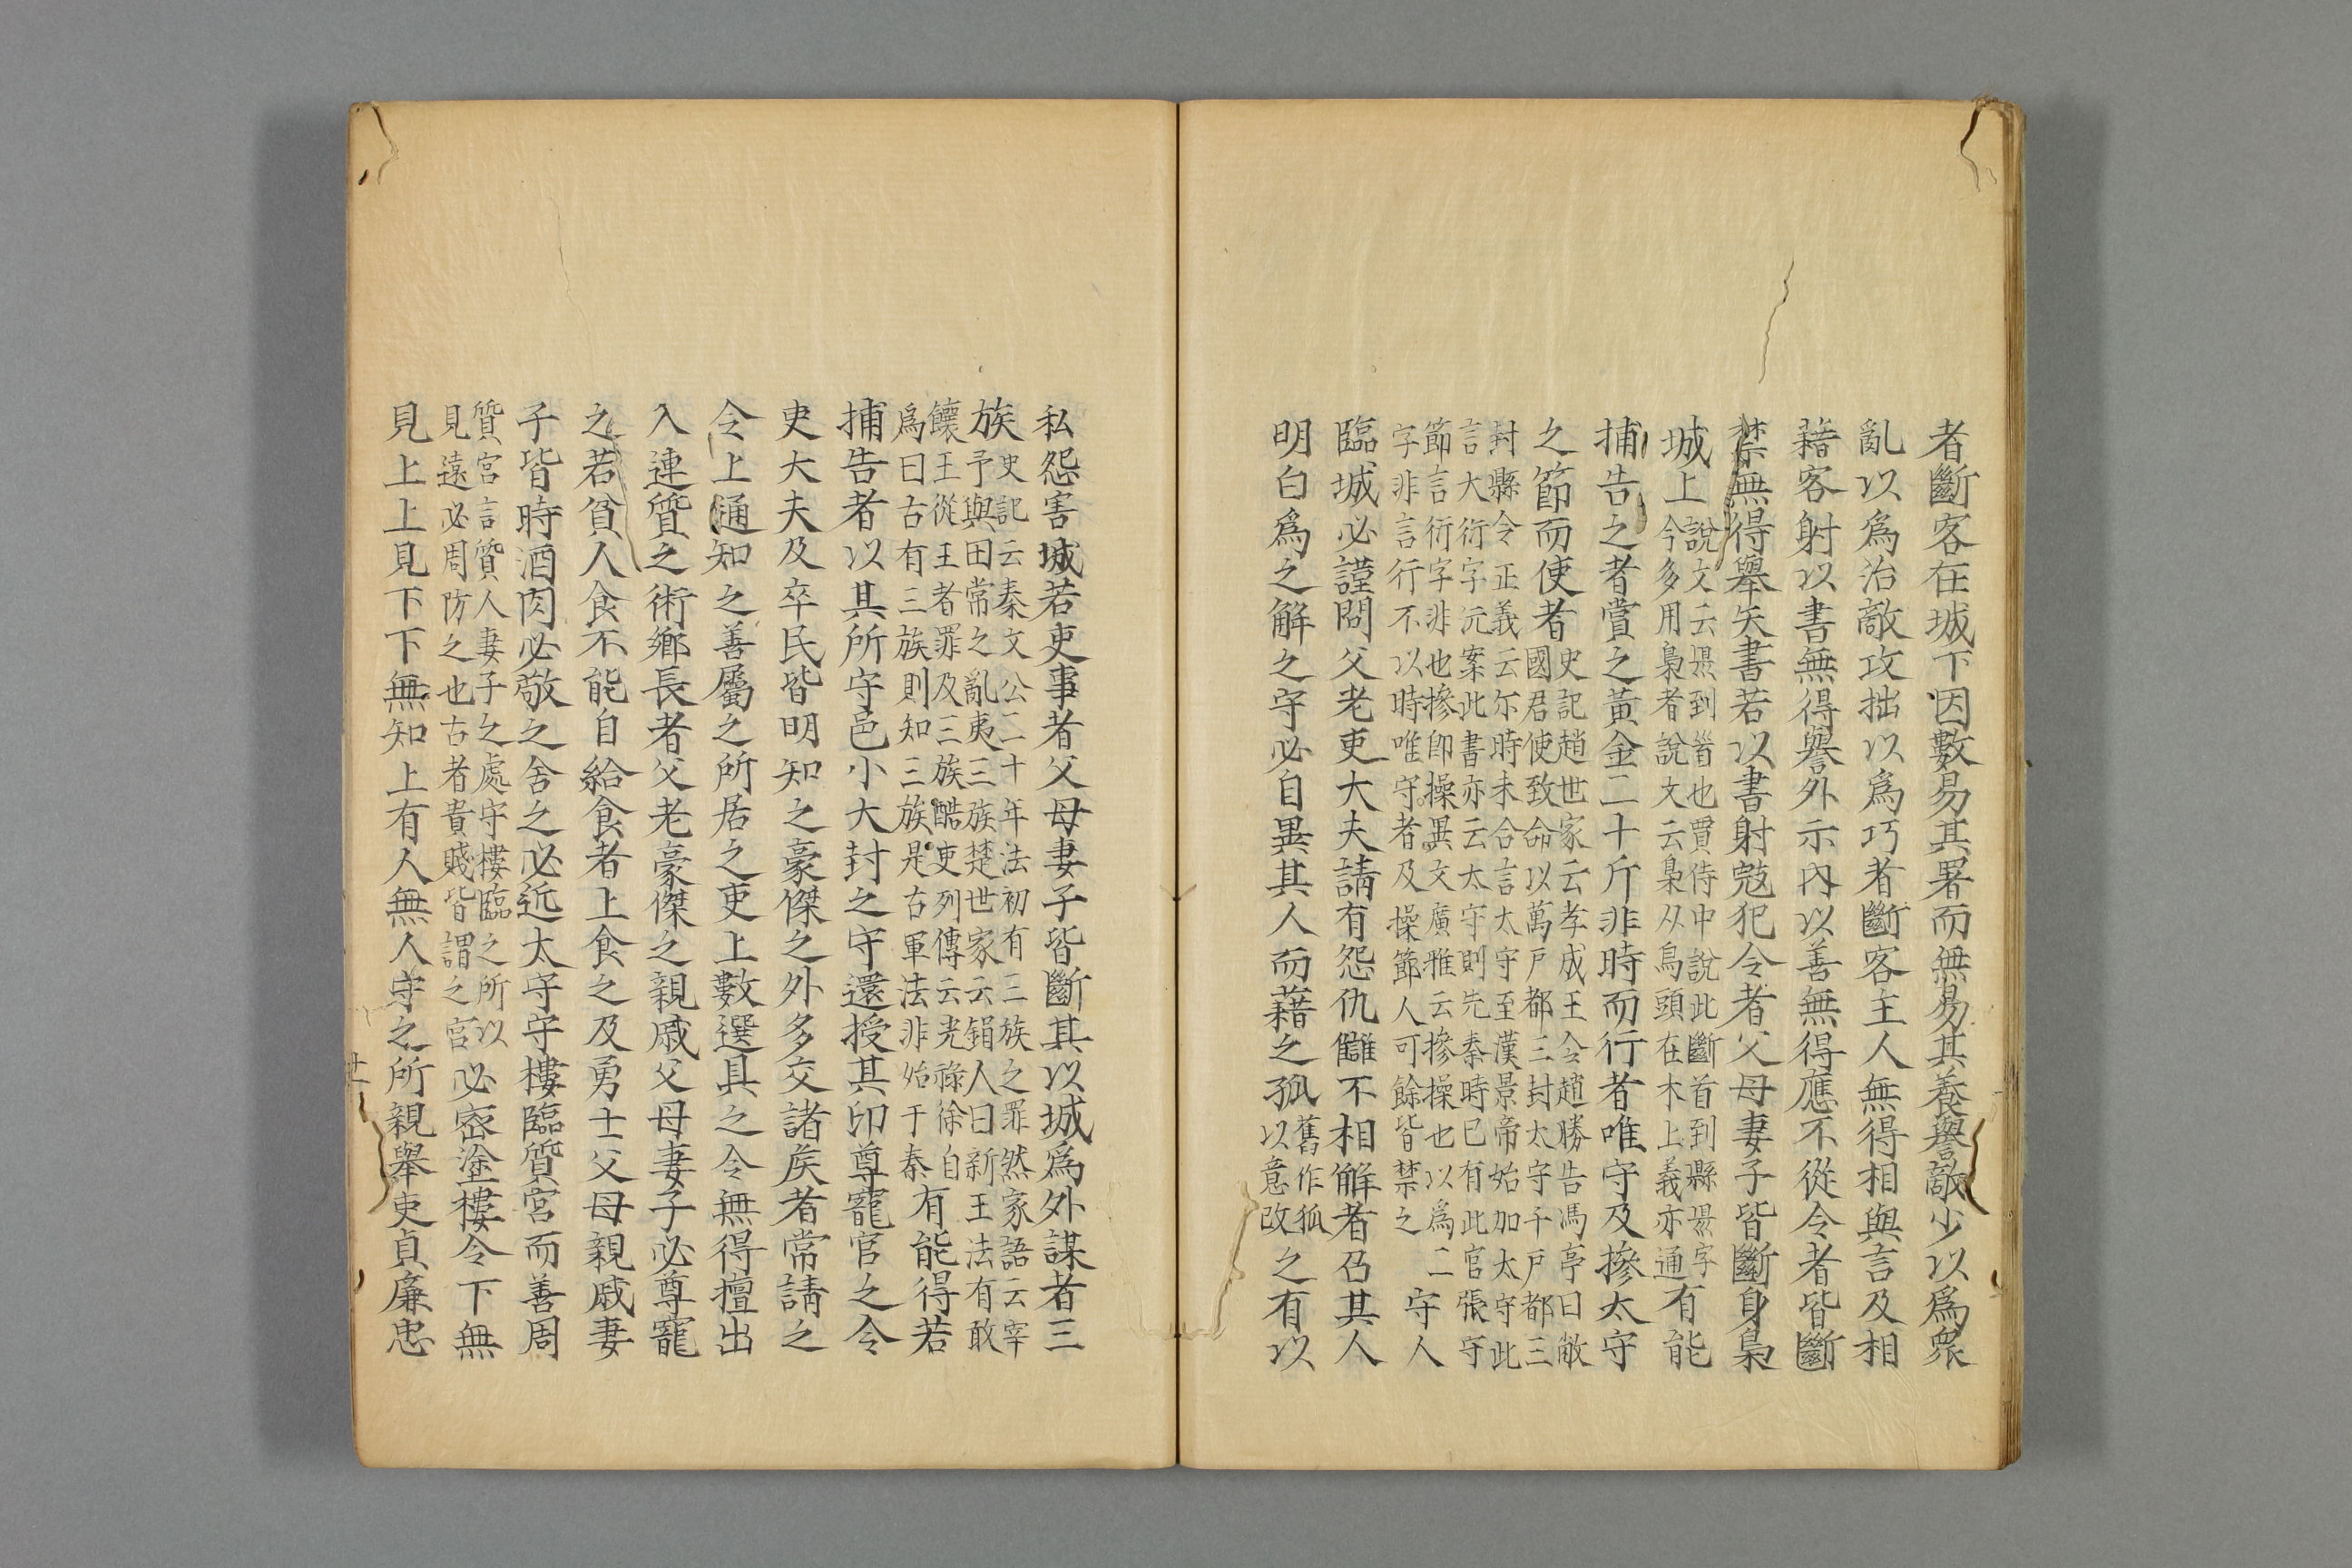 者斷客在城下因數易其署而無易其養譽敵少以爲衆
亂以爲治敵攻拙以爲巧者斷客主人無得相與言及相
藉客射以書無得譽外示內以善無得應不從令者皆斷
禁無得舉矢書若以書射寇犯令者父母妻子皆斷身梟
城上說文云㬎到首也賈侍中說此斷首到縣㬎字
今多用梟者說文云梟从鳥頭在木上義亦通有能
捕告之者賞之黃金二十斤非時而行者唯守及摻太守
之節而使者史記趙世家云孝成王令趙勝告馮亭曰敝
國君使致命以萬戶都三封太守千戶都三
封縣令正義云尓時未合言太守至漢景帝始加太守此
言大衍字沅案此書亦云太守則先秦時已有此官張守
節言衍字非也摻卽操異文廣雅云摻操也以爲二
字非言行不以時唯守者及操節人可餘皆禁之守人
臨城必謹問父老吏大夫請有怨仇讎不相解者召其人
明白爲之解之守必自異其人而藉之孤舊作狐
以意改之有以
私怨害城若吏事者父母妻子皆斷其以城爲外謀者三
族史記云秦文公二十年法初有三族之罪然家語云宰
予與田常之亂夷三族楚世家云鋗人曰新王法有敢
饟王從王者罪及三族酷吏列傳云光祿徐自
爲曰古有三族則知三族是古軍法非始于秦有能得若
捕告者以其所守邑小大封之守還授其印尊寵官之令
吏大夫及卒民皆明知之豪傑之外多交諸矦者常請之
令上通知之善屬之所居之吏上數選具之令無得擅出
入連質之術鄉長者父老豪傑之親戚父母妻子必尊寵
之若貧人食不能自給食者上食之及勇士父母親戚妻
子皆時酒肉必敬之舍之必近太守守樓臨質宮而善周
質宮言質人妻子之處守樓臨之所以
見遠必周防之也古者貴賤皆謂之宮必密塗樓令下無
見上上見下下無知上有人無人守之所親舉吏貞廉忠